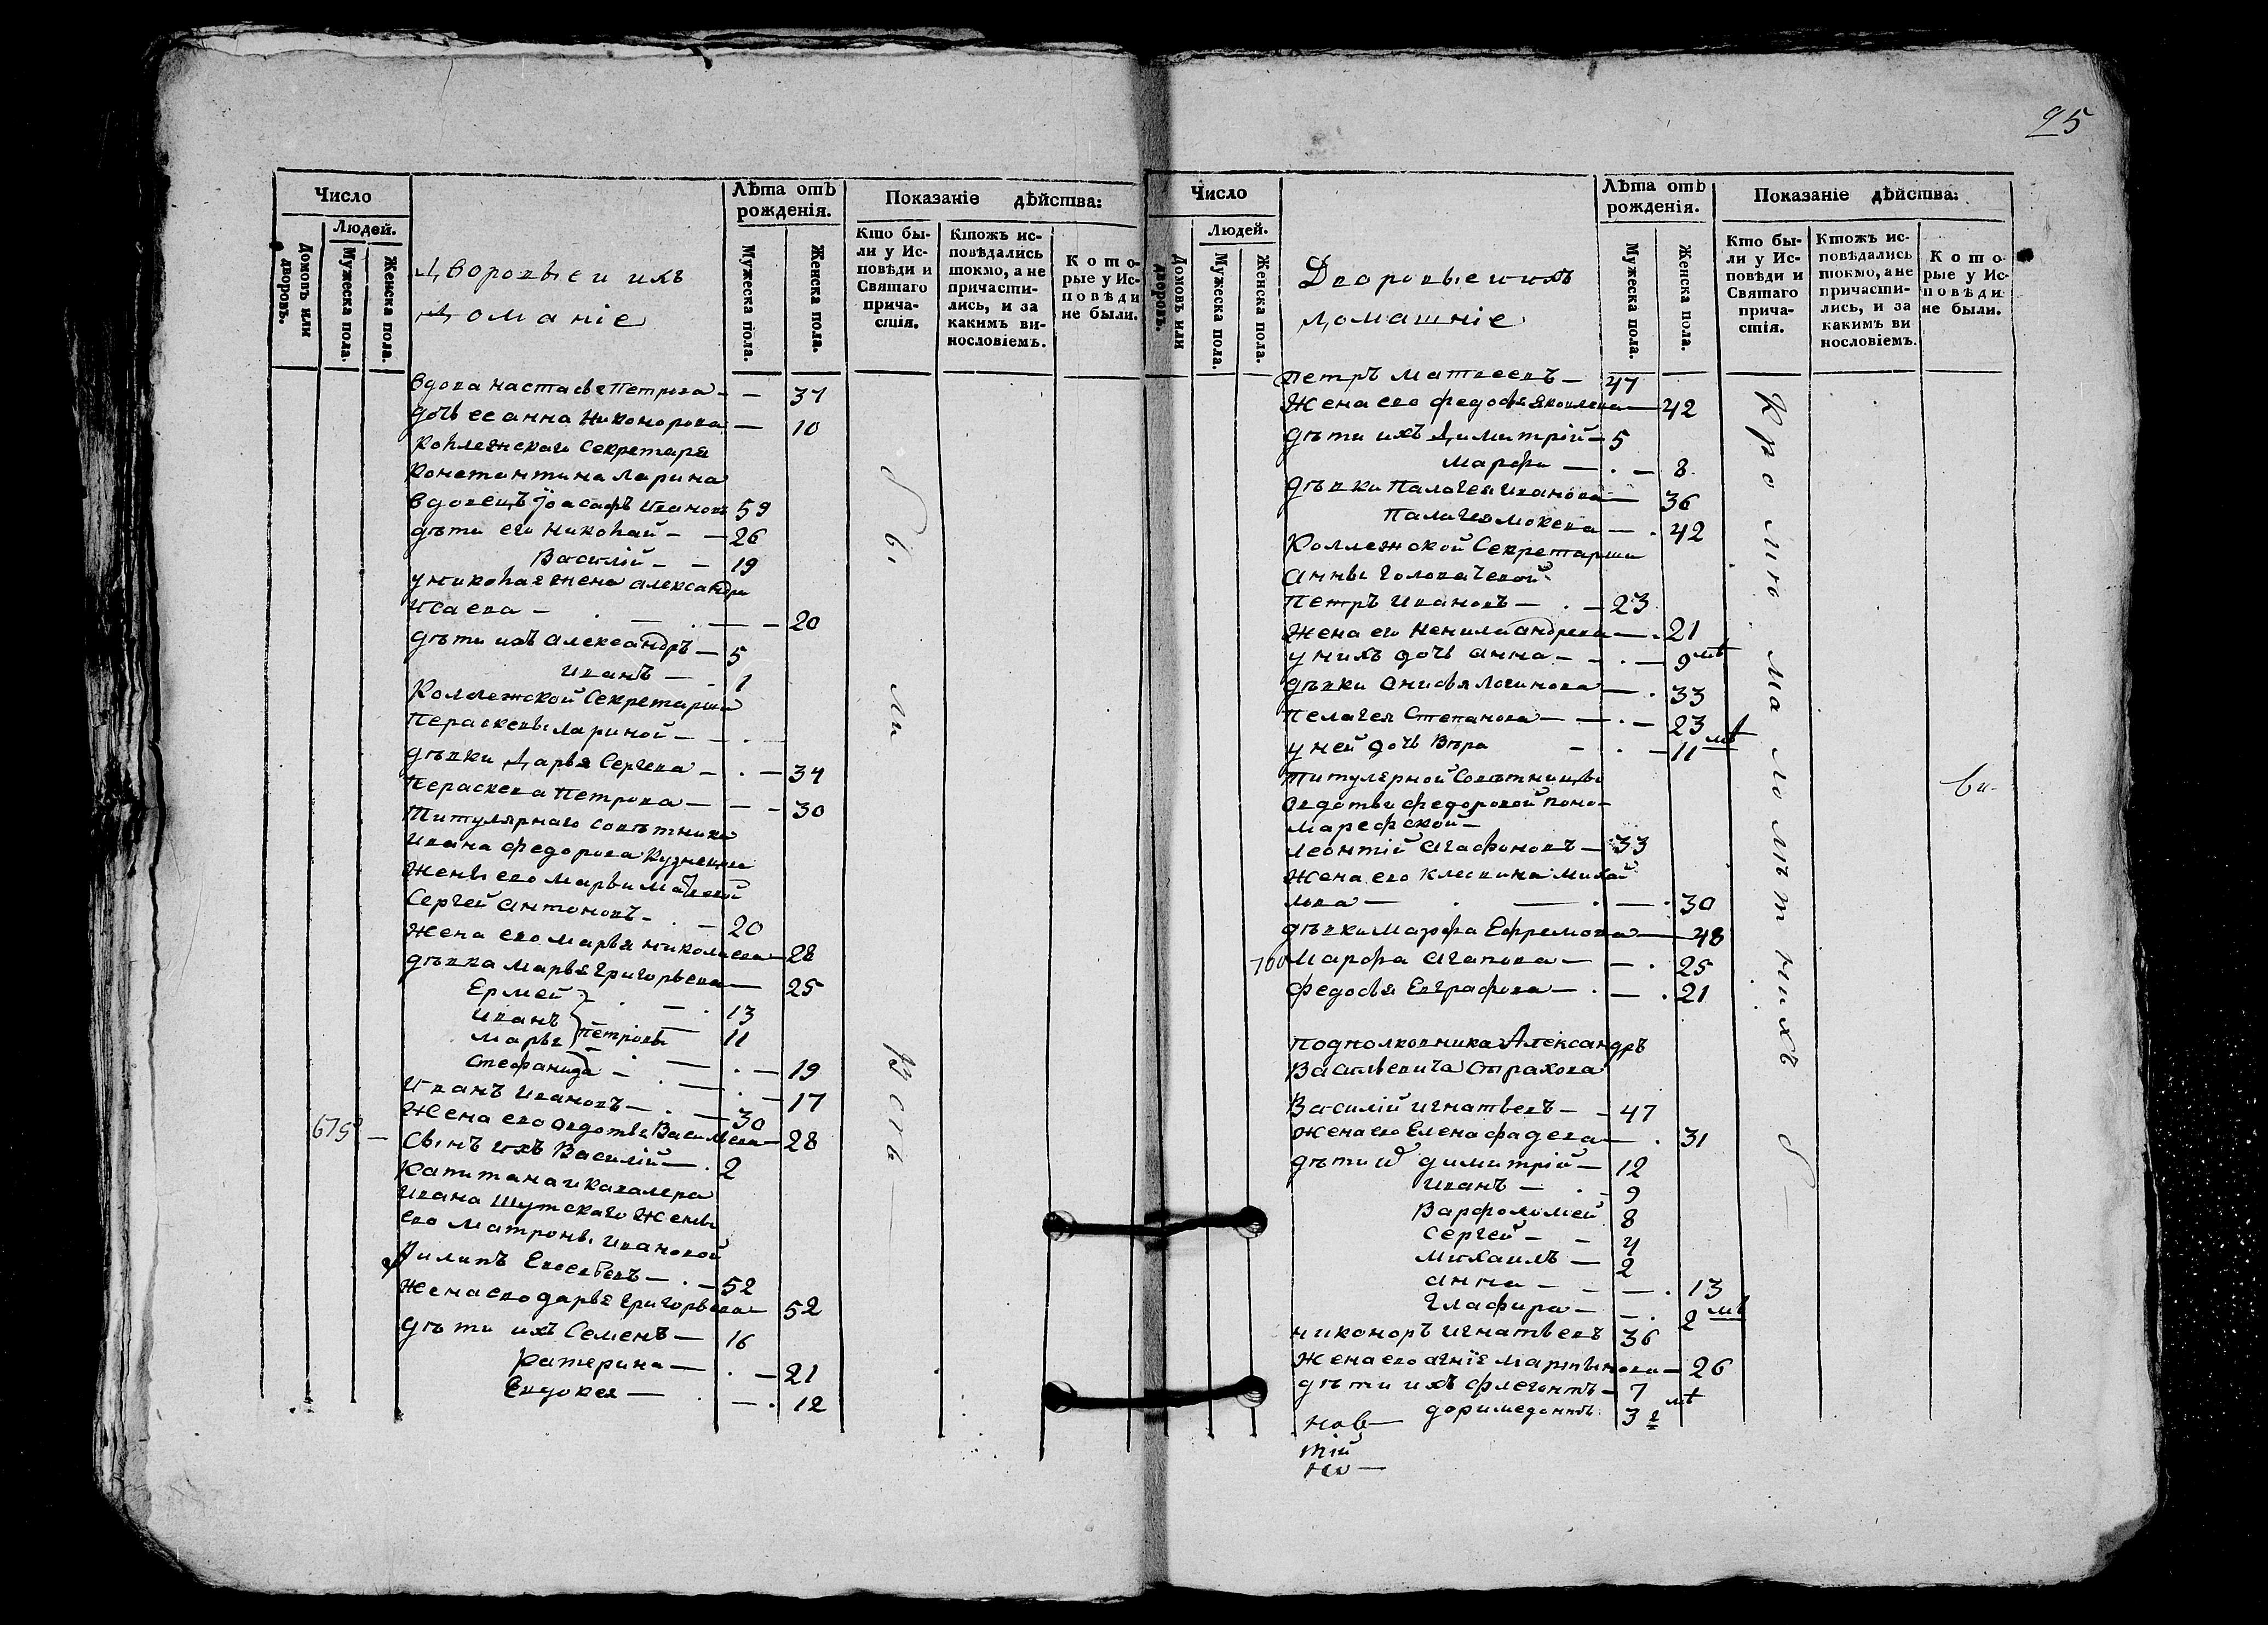 95
Число
Людей.
Домовъ или дворовъ.
Мужеска пола.
Женска пола.
Дворовые и ихъ
Доманіе
Лѣта отъ рожденія.
Мужеска пола.
Женска пола.
Показаніе дѣйства:
Кто были у Исповѣди и Святаго причастія.
Ктожъ исповѣдались токмо, а не причастились, и за какимъ винословіемъ.
Которые у Исповѣди не были.
вдова настасья Петрова — 37
дочь ее анна Никонорова — 10
коллежскаго Секретаря
Константина Ларина
вдовецъ Іоасафъ Ивановъ 59
дѣти его Николай — 26
Василій — 19
у николая жена александра
Исаева — 20
дѣти ихъ александръ — 5
иванъ — 1
Коллежской Секретарши
Перасковьи Лариной —
дѣвки Дарья Сергева — 34
Пераскева Петрова — 30
Титулярнаго совѣтника
ивана федорова
жены его марьи
Сергей антоновъ — 20
жена его марья николаева — 28
дѣвка марья григорьева — 25
Ермей — 13
иванъ петровы 11
марья — 19
стефанида — 17
иванъ ивановъ — 30
жена его авдотья Васильева — 28
675
сынъ ихъ Василій — 2
капитана и кавалера
ивана Шутскаго жены
его матроны ивановой
филипъ Евсевьевъ — 52
жена его дарья григорьева — 52
дѣти ихъ Семенъ — 16
катерина — 21
Евдокея — 12
были
Число
Людей.
Домовъ или дворовъ.
Мужеска пола.
Женска пола.
Дворовые и ихъ
домашніе
Лѣта отъ рожденія.
Мужеска пола.
Женска пола.
Показаніе дѣйства:
Кто были у Исповѣди и Святаго причастія.
Ктожъ исповѣдались токмо, а не причастились, и за какимъ винословіемъ.
Которые у Исповѣди не были.
петръ матвеевъ — 47
жена его федосья яковлева — 42
дѣти ихъ димитрій — 5
марфа — 8
дѣвки палагея иванова — 36
палагея мокева — 42
Коллежской Секретарши
анны головачевой
петръ ивановъ — 23
жена его ненила андреева — 21
у нихъ дочь анна — 9 мѣ
дѣвки анисья логинова — 33
пелагея Степанова — 23
у ней дочь Вѣра — 11 мѣ
титулярной совѣтницы
авдотьи федоровой поно-
марефской —
леонтій агафоновъ — 33
жена его михай
лова — 30
дѣвки марфа Ефремова — 48
700 марфа агапова — 25
федосья Евграфова — 21
подполковника Александръ
Васильевича Страхова
Василій игнатьевъ — 47
жена его Елена фадеева — 31
дѣти димитрій — 12
иванъ — 9
Варфоломей 8
сергей — 4
михаилъ — 2
анна — 13
глафира — 2 мѣ
никоноръ игнатьевъ 36
жена его мартынова — 26
дѣти ихъ флегонтъ — 7
доримедонтъ 3 мѣ
Кромю малолѣтнихъ